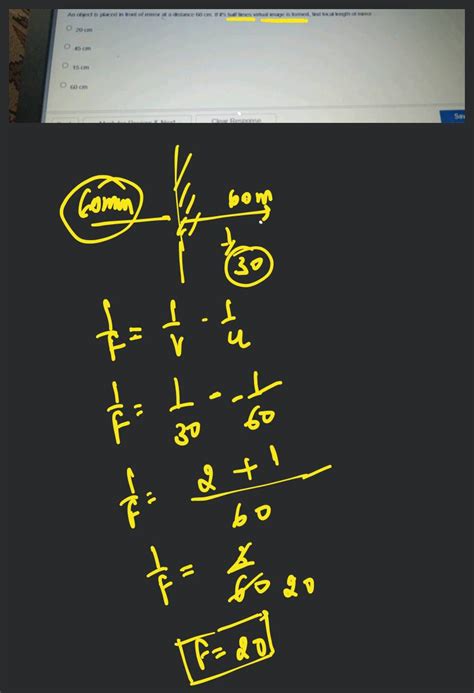 An object is placed in front of mirror at a distance 60 cm. If it's half times virtual image is formed, find focal length of mirror.
20 cm
45 cm
15 cm
60 cm
Clear Response
60mm
60m
1/
30
1/F = 1/V - 1/u
1/F = 1/30 - -1/60
1/F = 2 + 1/60
1/F = 3/60 20
F = 20